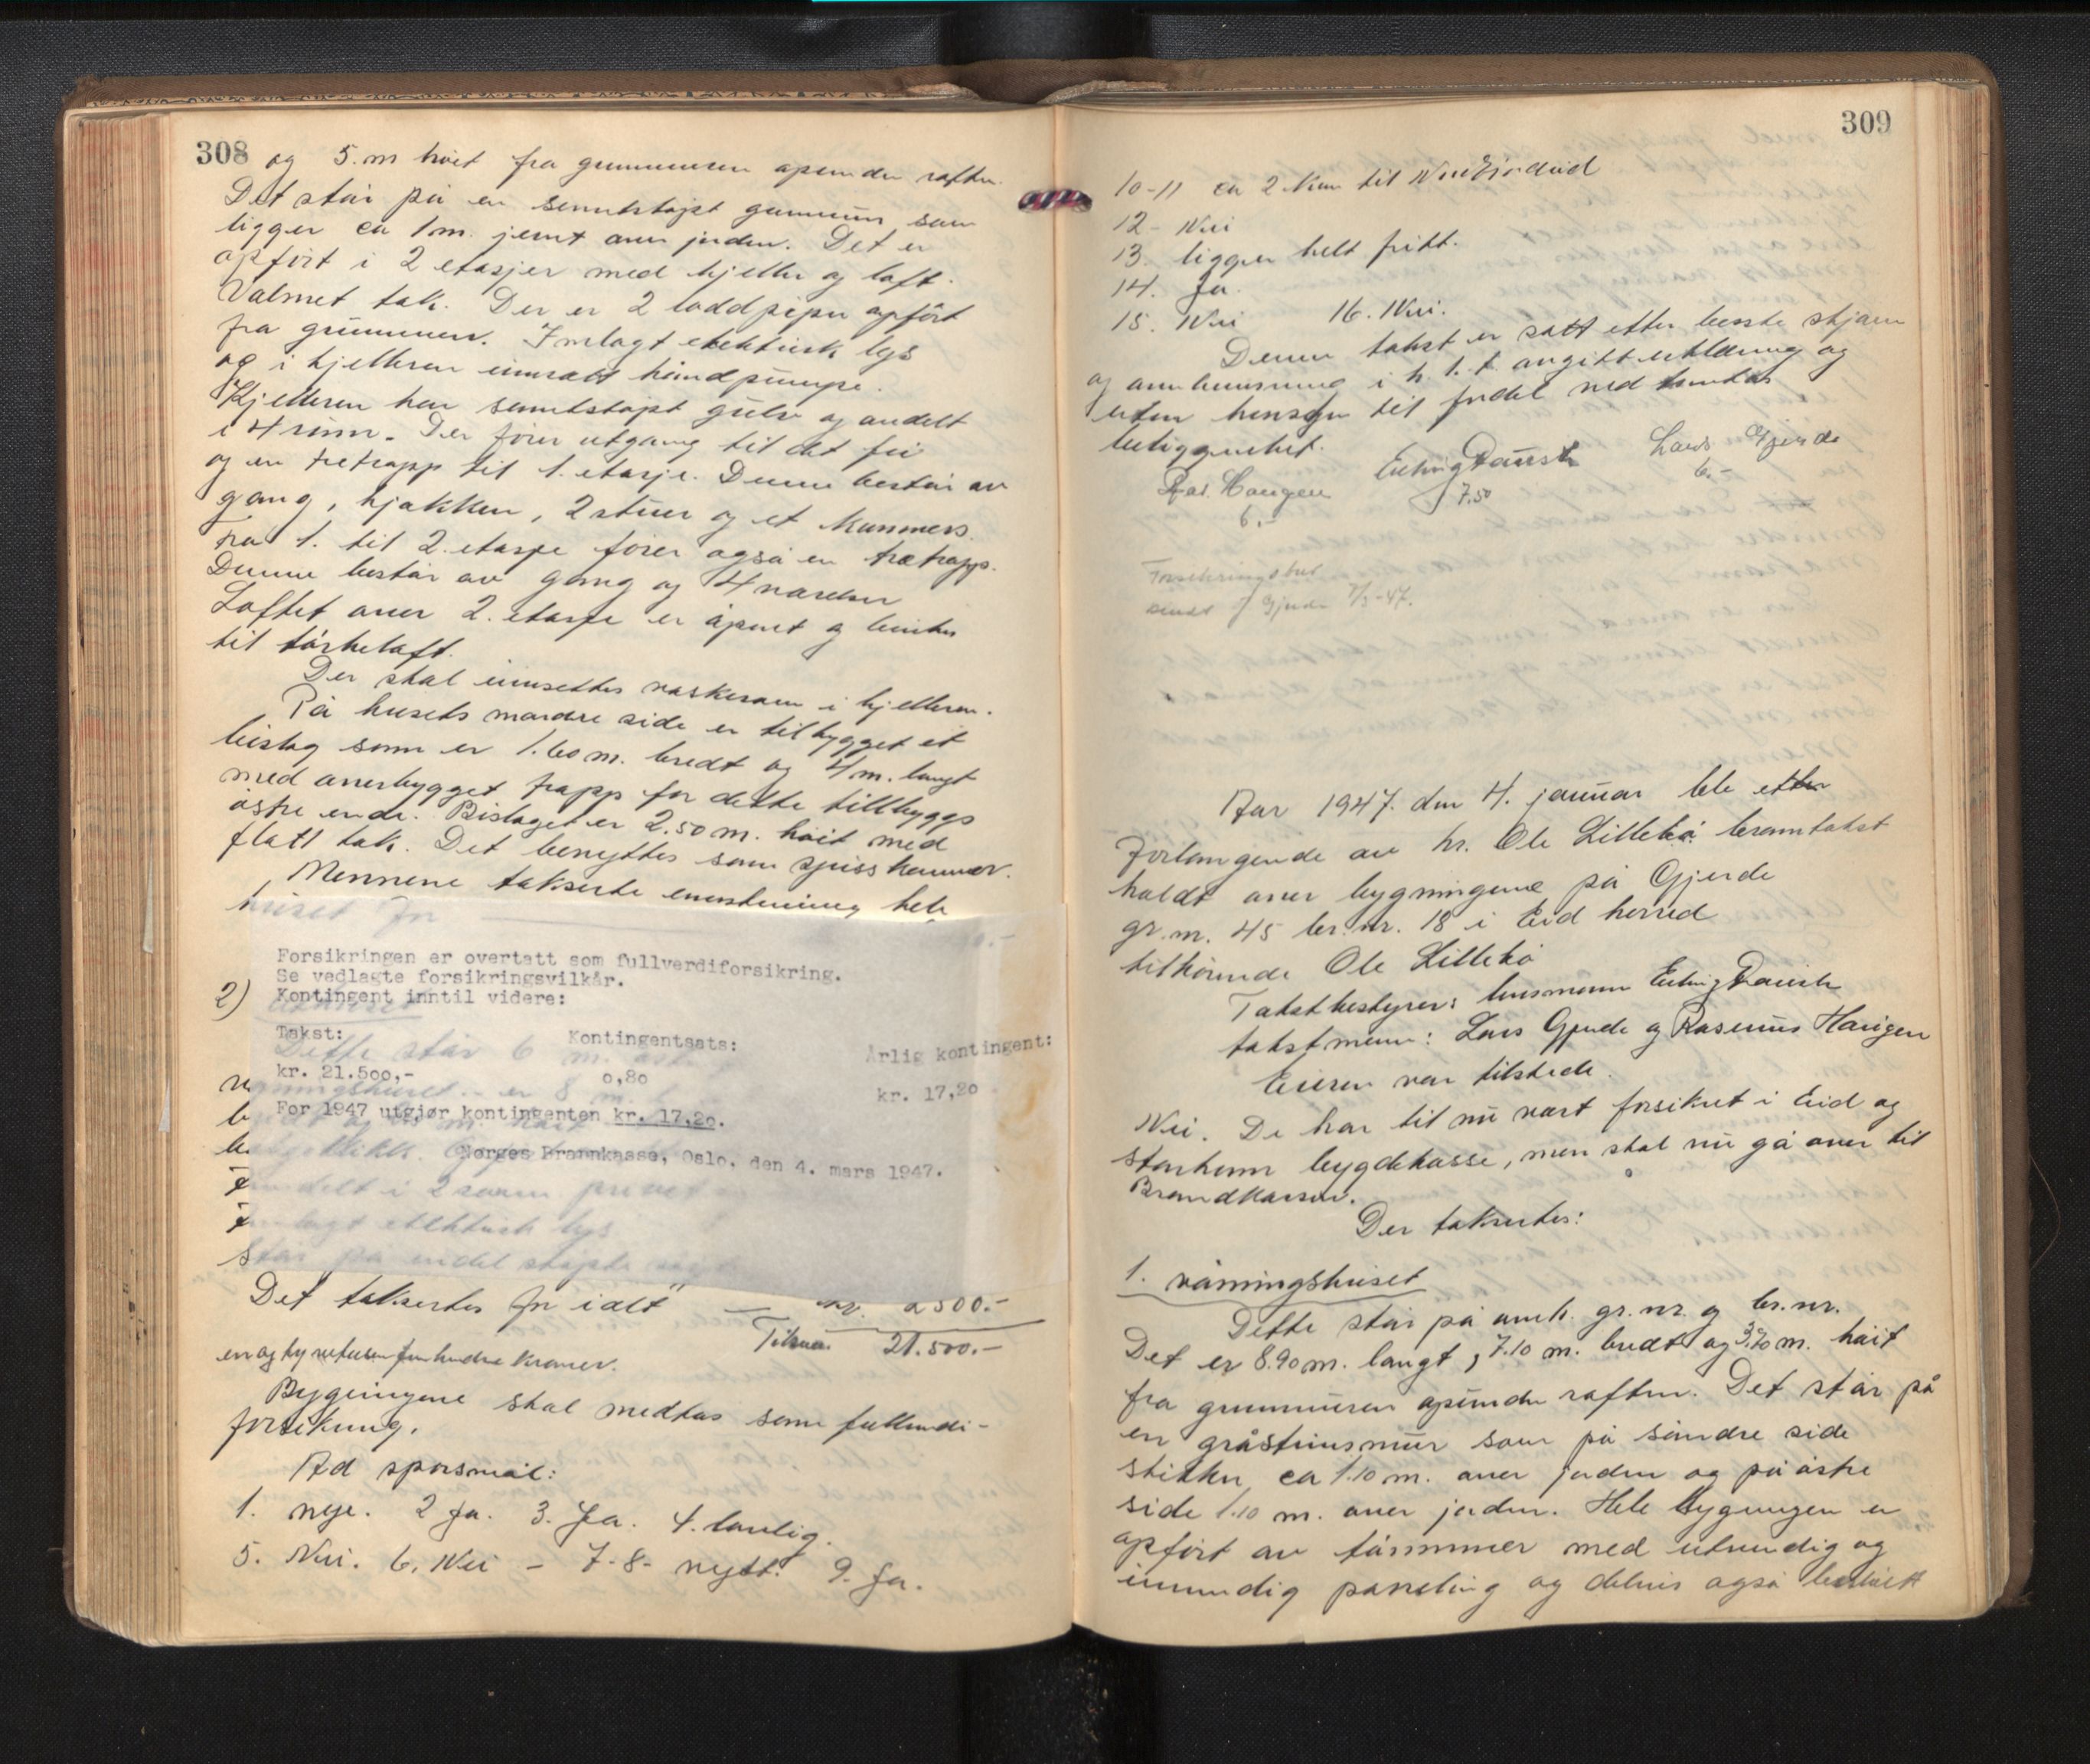 308
og 5. m høit fra grunnmuren apunder raften.
Det står på en sementstøpt grunnmur som
ligger ca 1 m. jevnt over jorden. Det er
opført i 2 etasjer med kjeller og loft.
Valmet tak. Der er 2 loddpiper opført
fra grunnen. Innlagt elektrisk lys
og i kjelleren innsatt håndpumpe.
Kjelleren har sementstøpt gulv og avdelt
i 4 rum. Der fører utgang til det fri
og en tretrapp til 1. etasje. Denne består av
gang, kjøkken, 2 stuer og et kammers.
Fra 1. til 2. etasje fører også en trætrapp.
Denne består av gang og 4 værelser
Loftet over 2. etasje er åpent og benttes
til tørkeloft.
Der skal innsettes vaskerom i kjelleren.
På husets nordre side er tilbygget et
bislag som er 1.60 m. bredt og 4 m. langt
med overbygget trapp for dette tilbyggs
østre ende. Bislaget er 2.50 m. høit med
flatt tak. Det benyttes som spisskammer.
Mennene takserte enstemmig hele
huset for
Forsikringen er overtatt som fullverdiforsikring.
Se vedlagte forsikringsvilkår.
2) Kontingent inntil videre:
Takst: Kontingentsats: Årlig kontingent:
kr. 21.500,- 0,80 kr. 17,20
For 1947 utgjør kontingenten kr. 17,20.
Norges Brannkasse, Oslo, den 4. mars 1947.
Dette står 6 m.
er 8 m.
delt i 2 rum
innlagt elektrisk lys
Står på endel støpte
Det takseres for ialt — kr. 2500.-
Tilsam. 21.500.-
en og tyvetusen femhundre kroner.
Bygningene skal medtas som fullverdi-
forsikring.
Ad spørsmål:
1. nye. 2 Ja. 3. Ja. 4. lovlig.
5. Nei. 6. Nei - 7-8- nytt. 9. Ja.
309
10-11 ca 2 km til
12- Nei
13. ligger helt fritt.
14. Ja.
15. Nei 16. Nei.
Denne takst er satt efter beste skjønn
og anvisning i h. t. avgitt erklæring og
uten hensyn til fordel ved tomtens
beliggenhet.
Erling Laurits Lars Gjerde
Ras. Haugen 7.50 6.-
6.-
Forsikringsbrev
sendt J Gjerde 7/3-47.
Aar 1947. den 4. januar ble etter
forlangende av hr. Ole Lillebø branntakst
holdt over bygningene på Gjerde
gr. nr. 45 br. nr. 18 i Eid herred
tilhørende Ole Lillebø
Takstbestyrer: lensmann Erling
takstmenn: Lars Gjerde og Rasmus Haugen
Eieren var tilstede.
Nei. De har til nu vært forsikret i Eid og
Stårheim bygdekasse, men skal nu gå over til
Brandkassen.
Der takseres:
1. våningshuset
Dette står på anmh. gr. nr. og br. nr.
Det er 8.90 m. langt, 7.10 m. bredt og 3.20 m. høit
fra grunnmuren apunder raften. Det står på
en gråsteinsmur som på søndre side
stikker ca 1.10 m. over jorden og på østre
side 1.10 m. over jorden. Hele bygningen er
opført av tømmer med utvendig og
innvendig paneling og delvis også